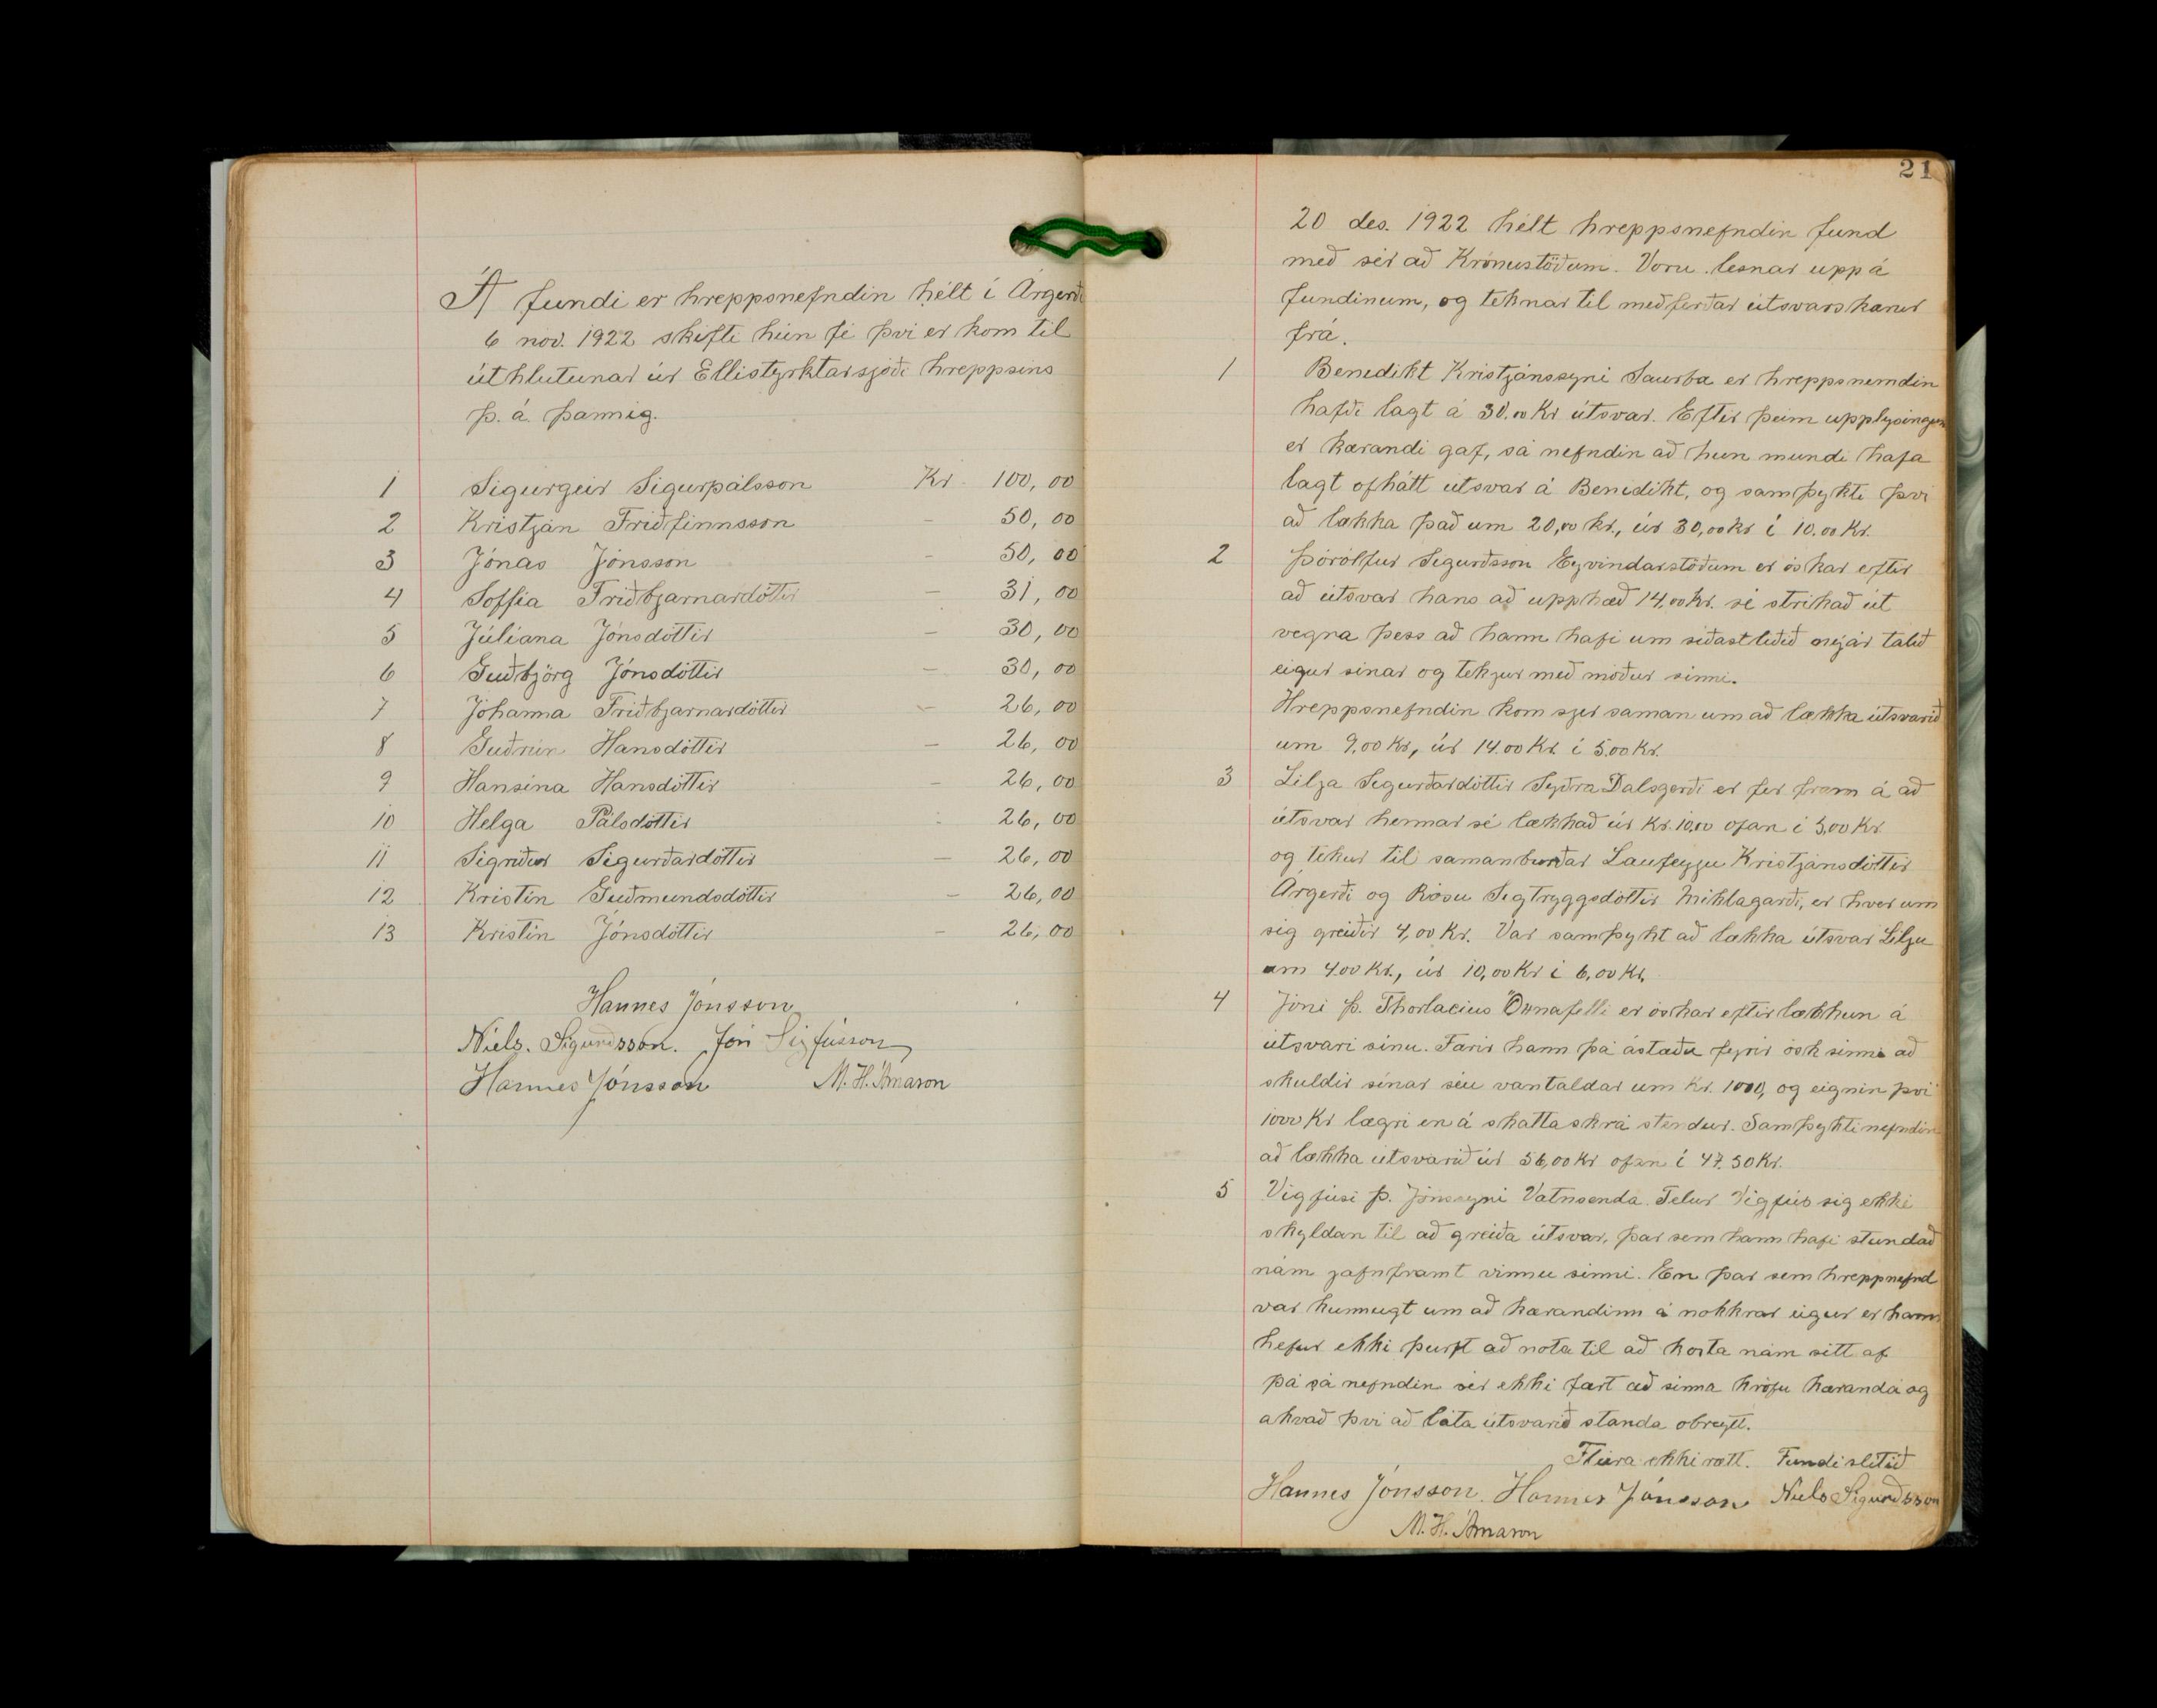 Á fundi er hreppsnefndin hélt í Árgerði
6 nóv. 1922 skifti hún fé því er kom til
úthlutunar úr Ellistyrktarsjóði hreppsins
þ. á. þannig.
1 Sigurgeir Sigurpálsson Kr. 100,00
2 Kristján Friðfinnsson – 50,00
3 Jónas Jónsson – 50,00
4 Soffía Friðbjarnardóttir – 31,00
5 Júlíana Jónsdóttir – 30,00
6 Guðbjörg Jónsdóttir – 30,00
7 Jóhanna Friðbjarnardóttir – 26,00
8 Guðrún Hansdóttir – 26,00
9 Hansína Hansdóttir – 26,00
10 Helga Pálsdóttir – 26,00
11 Sigríður Sigurðardóttir – 26,00
12 Kristín Guðmundsdóttir – 26,00
13 Kristín Jónsdóttir – 26,00
Hannes Jónsson
Níels. Sigurðsson. Jón Sigfússon
Hannes Jónsson M. H. Árnason
21
20 des. 1922 hélt hreppsnefndin fund
með sér að Krónustöðum. Voru lesnar upp á
fundinum, og teknar til meðferðar útsvarskærur
frá.
1 Benedikt Kristjánssyni Saurbæ er hreppsnemdin
hafði lagt á 30.00 Kr útsvar. Eftir þeim upplýsingum
er kærandi gaf, sá nefndin að hun mundi hafa
lagt ofhátt útsvar á Benidikt, og samþykti því
að lækka það um 20,00 kr., úr 30,00 kr í 10.00 Kr.
2 Þórólfur Sigurðsson Eyvindarstöðum er óskar eftir
að útsvar hans að upphæð 14,00 Kr. sé strikað út
vegna þess að hann hafi um síðastliðið nýjár talið
eigur sínar og tekjur með móður sinni.
Hreppsnefndin kom sjer saman um að lækka útsvarið
um 9,00 Kr, úr 14.00 Kr í 5.00 Kr.
3 Lilja Sigurðardóttir Syðra Dalsgerði er fer fram á að
útsvar hennar sé lækkað úr Kr. 10,00 ofan í 5,00 Kr
og tekur til samanburðar Laufeyju Kristjánsdóttir
Árgerði og Rósu Sigtryggsdóttir Miklagarði, er hver um
sig greiðir 4,00 Kr. Var samþykt að lækka útsvar Lilju
um 4.00 Kr., úr 10,00 Kr í 6,00 Kr,
4 Jóni Þ. Thorlacius Öxnafelli er óskar eftir lækkun á
útsvari sínu. Færir hann þá ástæðu fyrir ósk sinni að
skuldir sínar séu vantaldar um Kr. 1000, og eignin því
1000 Kr lægri en á skattaskrá stendur. Samþykti nefndin
að lækka útsvarið úr 56,00 Kr ofan í 47.50 Kr.
5 Vigfúsi Þ. Jónssyni Vatnsenda. Telur Vigfús sig ekki
skyldan til að greiða útsvar, þar sem hann hafi stundað
nám jafnframt vinnu sinni. En þar sem hreppnefnd
var kunnugt um að kærandinn á nokkrar eigur er hann
hefur ekki þurft að nota til að kosta nám sitt af
þá sá nefndin sér ekki fært að sinna kröfu kæranda og
ákvað því að láta útsvarið standa óbreytt.
Fleira ekki rætt. Fundi slitið
Hannes Jónsson. Hannes Jónsson Níels Sigurðsson
M. H. Árnason